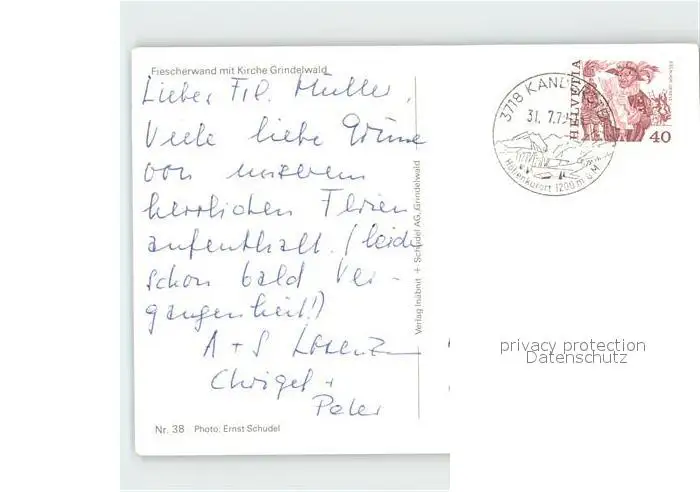 Fiescherwand mit Kirche Grindelwald
Liebes Frl. Müller,
Viele liebe Grüsse
von unserem
herrlichen Ferien
aufenthalt. (leider
schon bald Ver-
gangenheit!)
A + S Lorenz
Chrigel +
Peter
Nr. 38 Photo: Ernst Schudel
Verlag Inäbnit + Schudel AG, Grindelwald
3718 KAND
31. 7.7
Höhenkurort 1200 m ü.M.
HELVETIA
40
privacy protection
Datenschutz